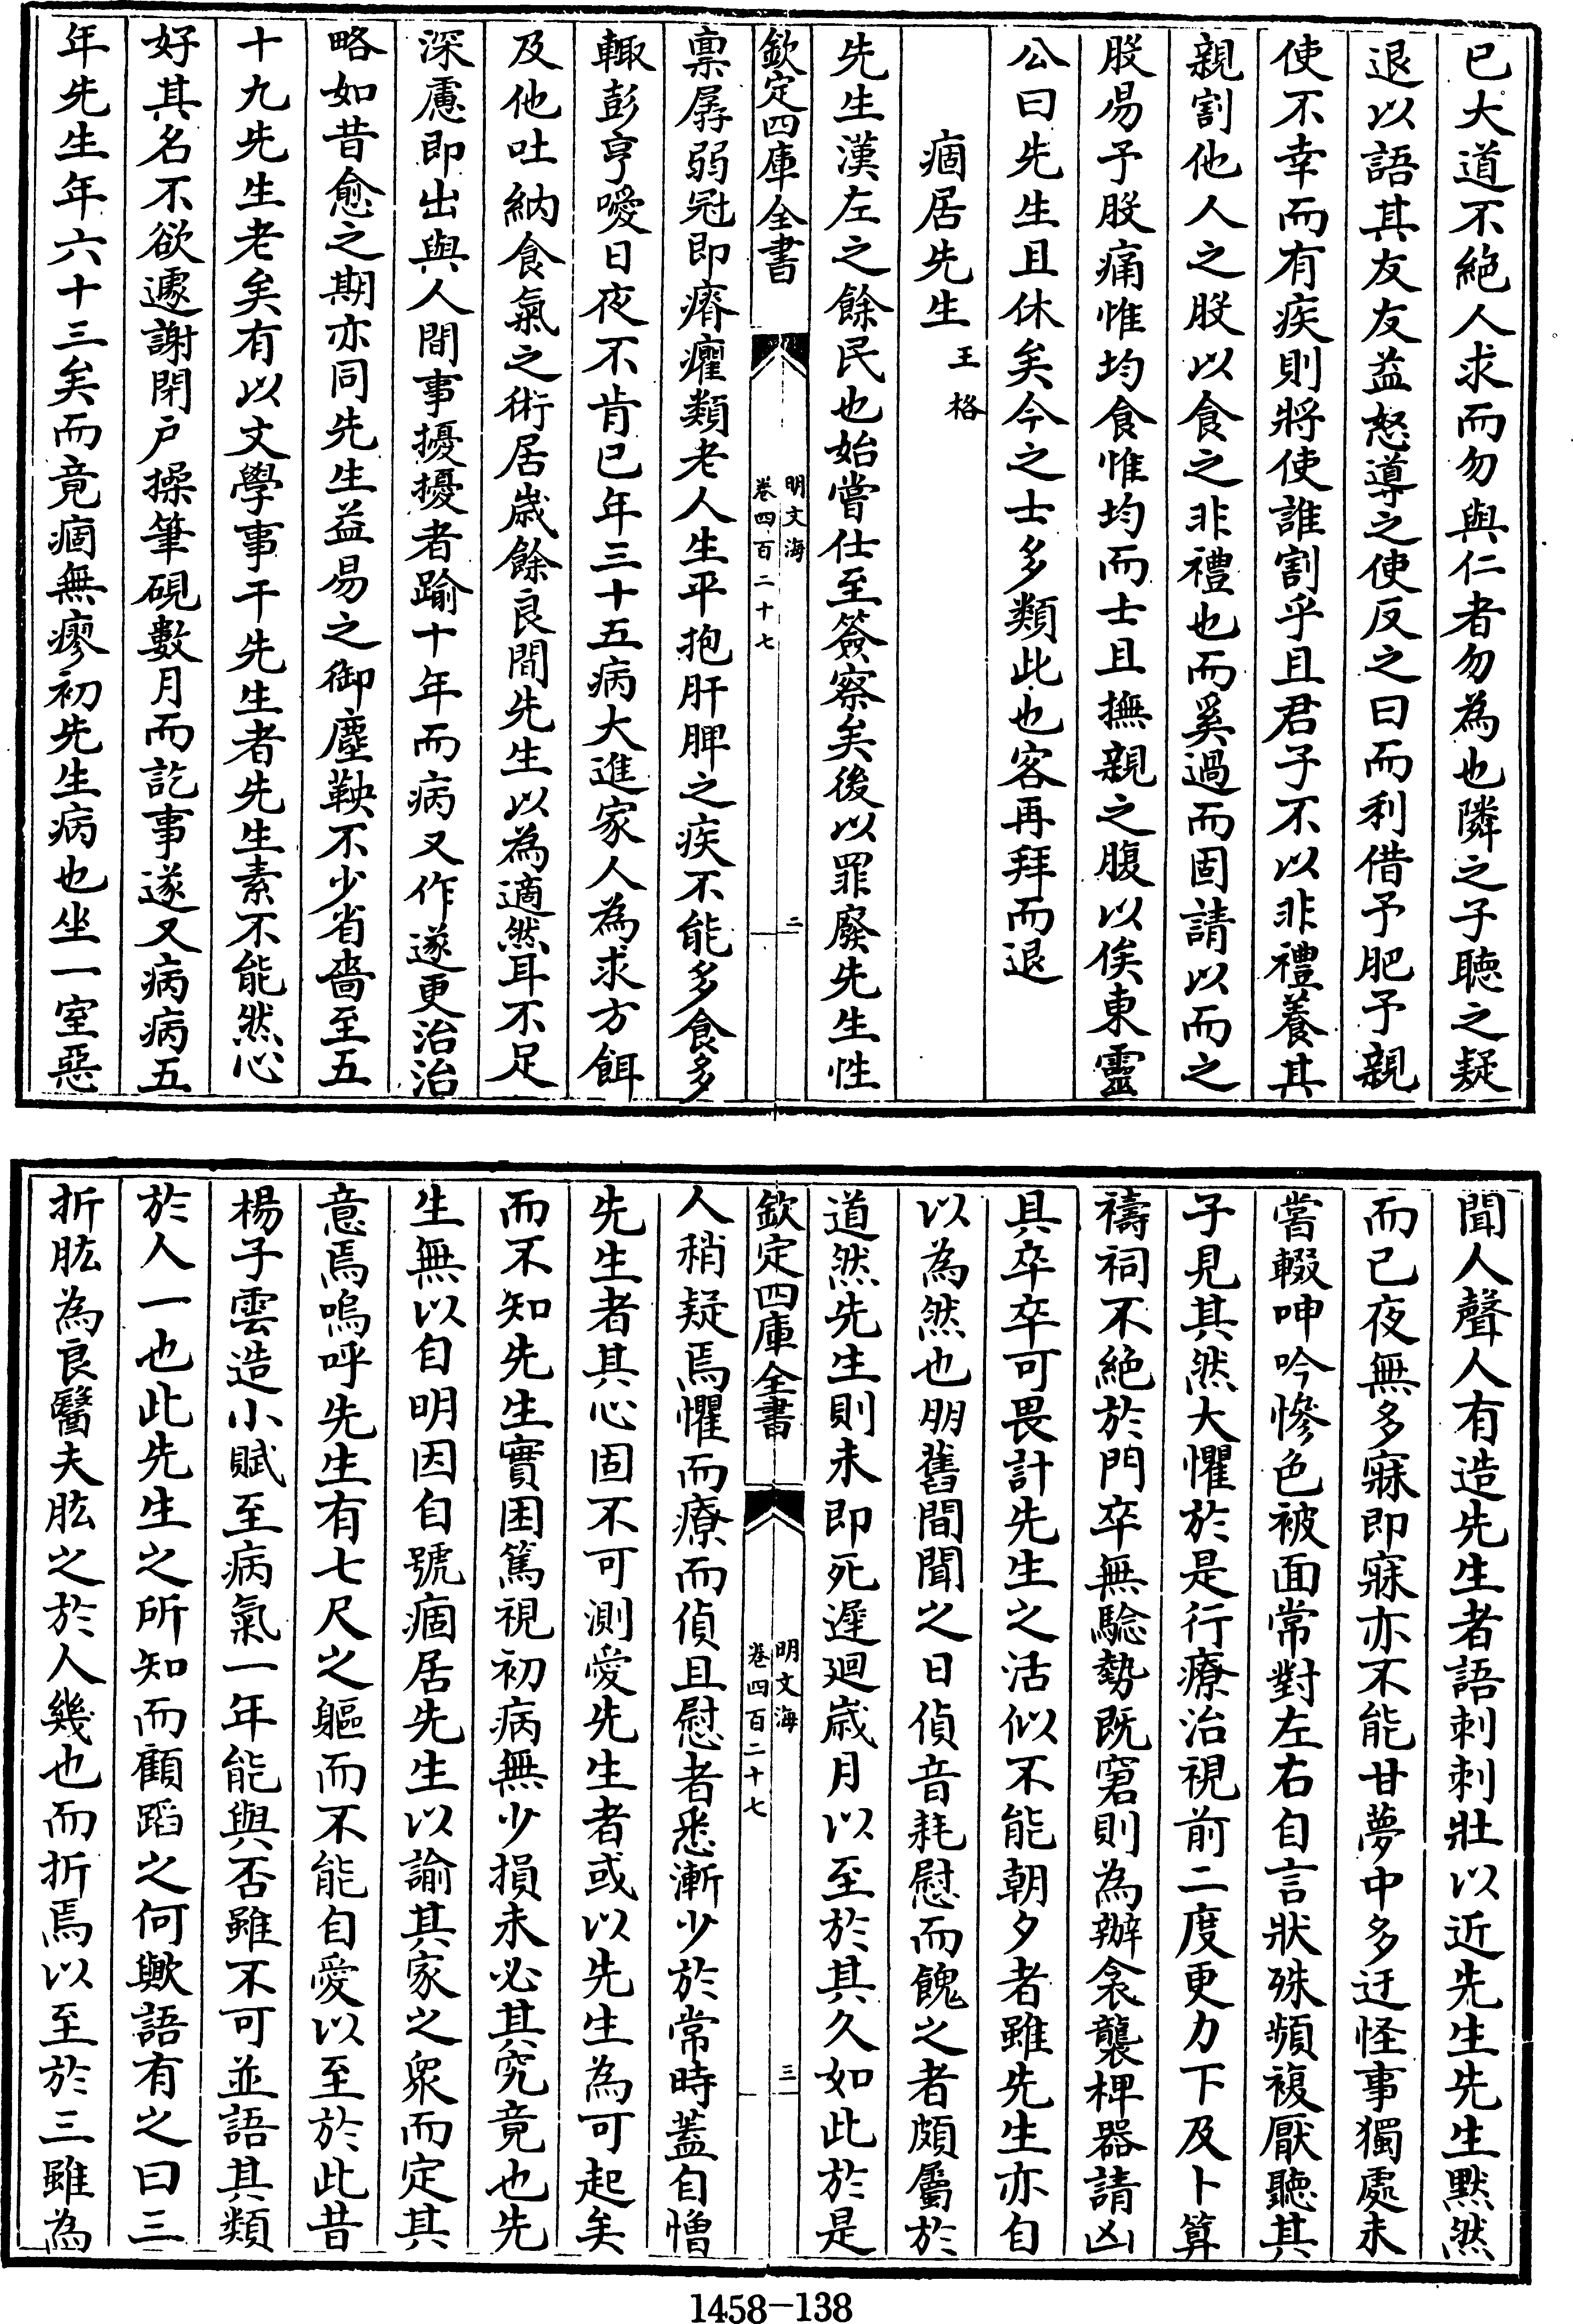 已大道不絕人求而勿與仁者勿為也隣之子聽之疑
退以語其友友益怒導之使反之曰而利借予肥予親
使不幸而有疾則將使誰割乎且君子不以非禮養其
親割他人之股以食之非禮也而奚過而固請以而之
股易予股痛惟均食惟均而士且撫親之腹以俟東靈
公曰先生且休矣今之士多類此也客再拜而退
痼居先生 王格
先生漢左之餘民也始嘗仕至簽察矣後以罪廢先生性
欽定四庫全書 明文海 卷四百二十七 二
禀孱弱冠即瘠癯類老人生平抱肝脾之疾不能多食多
輒彭亨噯日夜不肯已年三十五病大進家人為求方餌
及他吐納食氣之術居歲餘良間先生以為適然耳不足
深慮即出與人間事擾擾者踰十年而病又作遂更治治
略如昔愈之期亦同先生益易之御塵鞅不少省嗇至五
十九先生老矣有以文學事干先生者先生素不能然心
好其名不欲遽謝閉户操筆硯數月而訖事遂又病病五
年先生年六十三矣而竟痼無瘳初先生病也坐一室惡
聞人聲人有造先生者語刺刺壯以近先生先生默然
而已夜無多寐即寐亦不能甘夢中多迂怪事獨處未
嘗輟呻吟慘色被面常對左右自言狀殊頻複厭聽其
子見其然大懼於是行療治視前二度更力下及卜算
禱祠不絕於門卒無騐勢既窘則為辦衾襲椑器請凶
具卒卒可畏計先生之活似不能朝夕者雖先生亦自
以為然也朋舊間聞之日偵音耗慰而餽之者頗屬於
道然先生則未即死遲迴歲月以至於其久如此於是
欽定四庫全書 明文海 卷四百二十七 三
人稍疑焉懼而療而偵且慰者悉漸少於常時蓋自憎
先生者其心固不可測愛先生者或以先生為可起矣
而不知先生實困篤視初病無少損未必其究竟也先
生無以自明因自號痼居先生以諭其家之衆而定其
意焉嗚呼先生有七尺之軀而不能自愛以至於此昔
楊子雲造小賦至病氣一年能與否雖不可並語其類
於人一也此先生之所知而顧蹈之何歟語有之曰三
折肱為良醫夫肱之於人幾也而折焉以至於三雖為
1458-138